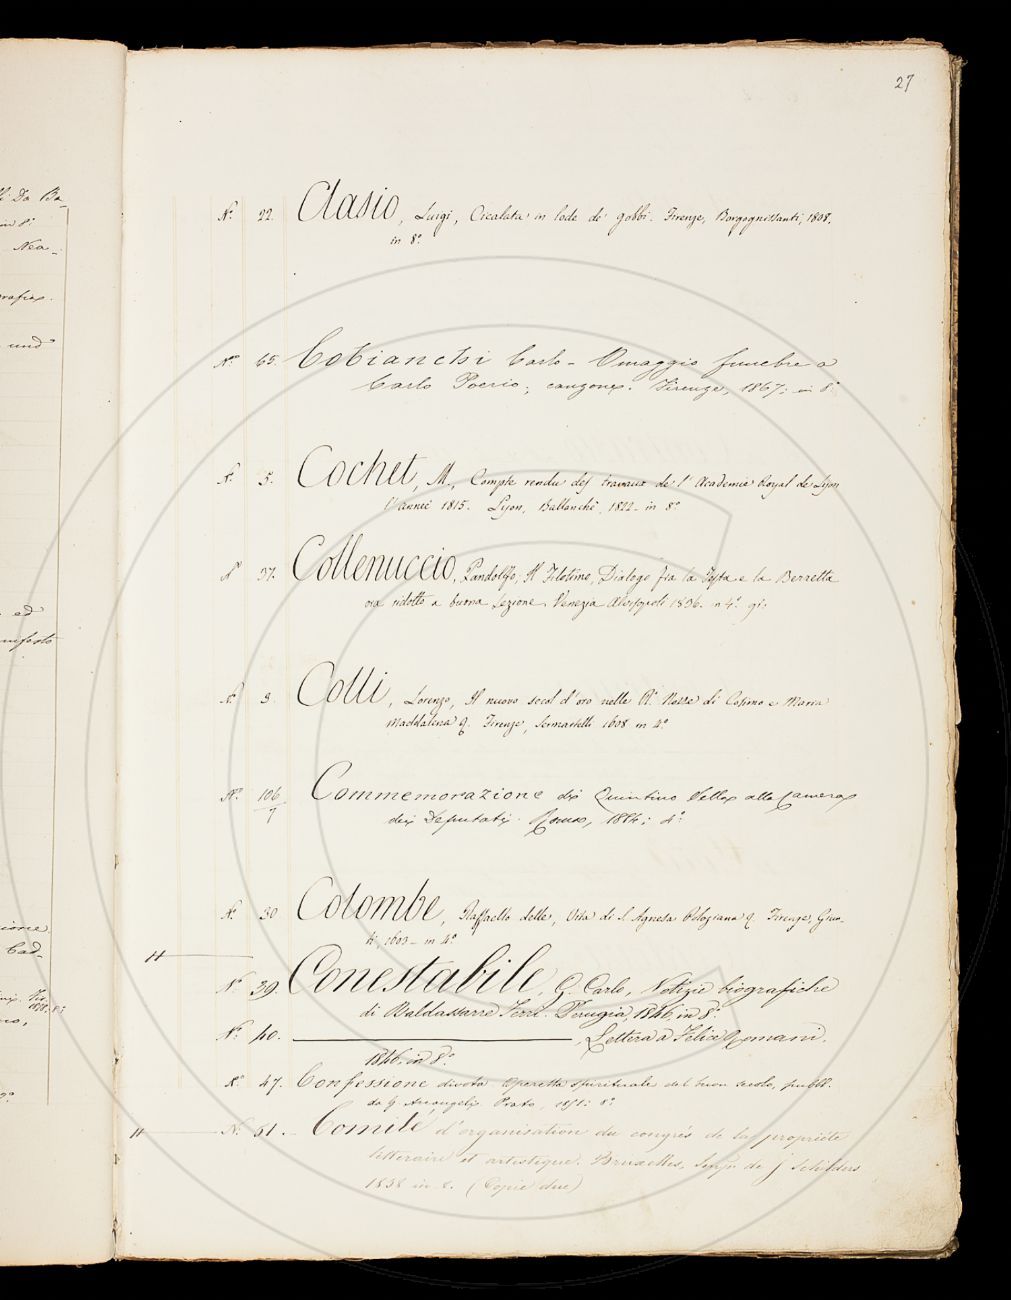 27
N.º 22. Clasio, Luigi, Cicalata in lode de' gobbi. Firenze, Borgognissanti, 1808.
in 8.º
N.º 65. Cobianchi Carlo - Omaggio funebre a
Carlo Poerio; canzone. Firenze, 1867; in 8.º
N.º 5. Cochet, M., Compte rendu des travaux de l'Academie Royal de Lyon
l'année 1815. Lyon, Ballanche, 1822 - in 8.º
N.º 37. Collenuccio, Pandolfo, Il Filotimo, Dialogo fra la Testa e la Berretta
ora ridotto a buona lezione. Venezia Alvisopoli 1836. in 4.º
N.º 3. Colli, Lorenzo, Il nuovo secol d'oro nelle R. Nozze di Cosimo e Maria
Maddalena &. Firenze, Sermartelli 1608 in 4.º
N.º 106/7 Commemorazione di Quintino Sella alla Camera
dei Deputati. Roma, 1884; 4.º
N.º 30. Colombe, Raffaello delle, Vita di S. Agnesa Poliziana &. Firenze, Giun-
ti, 1603 - in 4.º
N.º 39. Conestabile, G. Carlo, Notizie biografiche
di Baldassarre Perugia, 1846, in 8.º
N.º 40. ———, Lettera a Felice Romani.
1846, in 8.º
N.º 47. Confessione divota Operetta spirituale del buon secolo, pubbl.
da Arcangeli. Prato, in 8.º
N.º 51. - Comité d'organisation du congrés de la propriété
litteraire et artistique. Bruxelles, de J Schilders
1858 in 8. (Copie due)